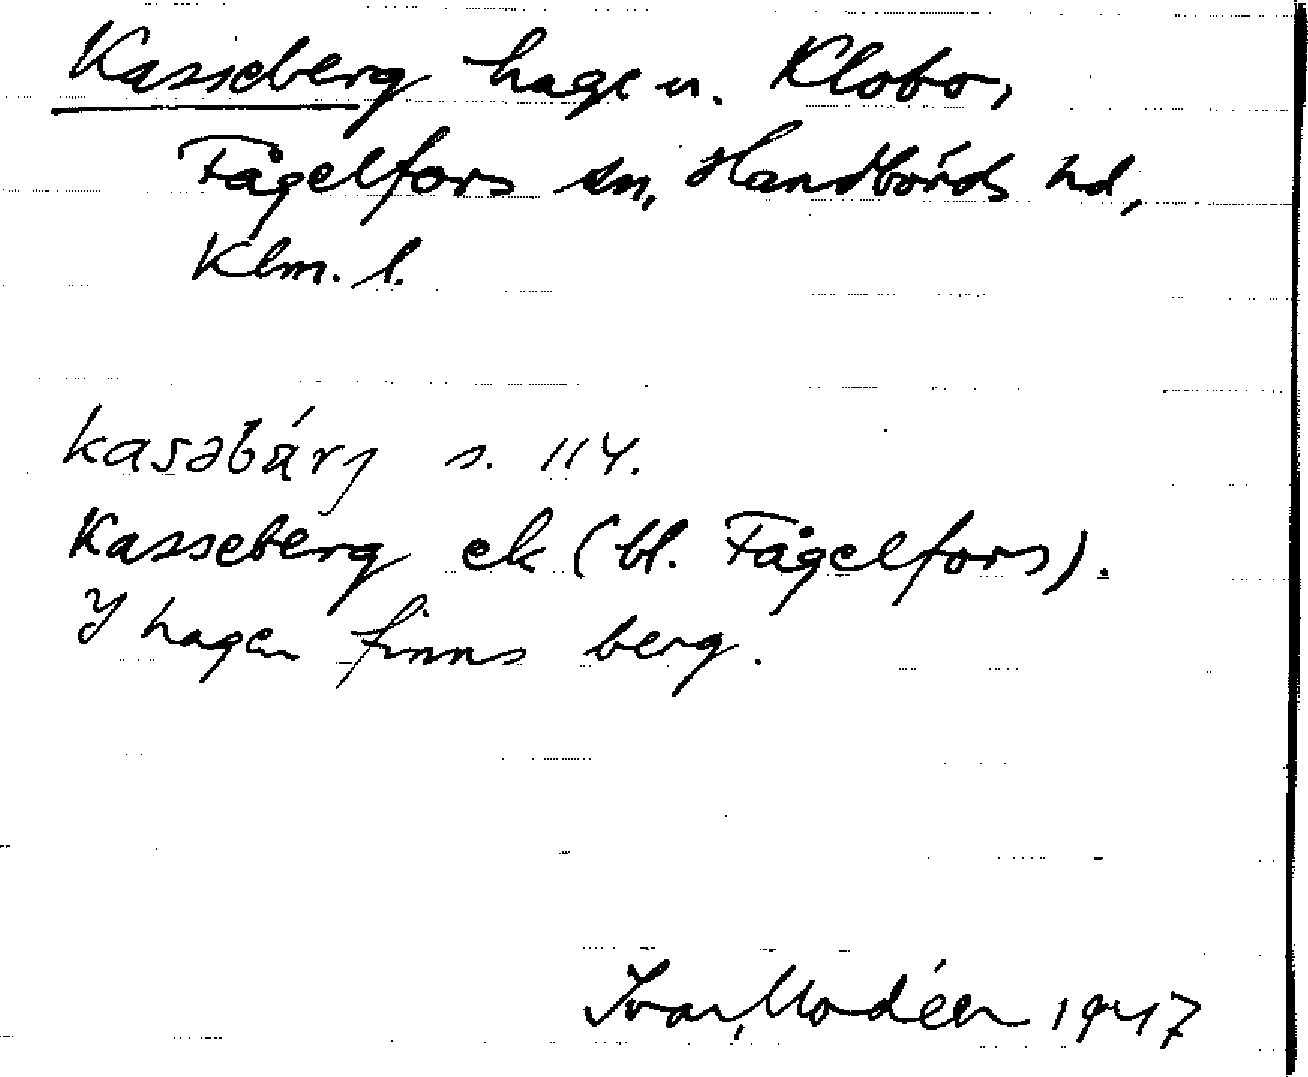 Kasseberg hage u. Klobo,
Fågelfors sn, Handbörds hd,
Klm. l.
kasəbárj s. 114.
Kasseberg ek (bl. Fågelfors).
I hagen finns berg.
Ivar Modéer 1947